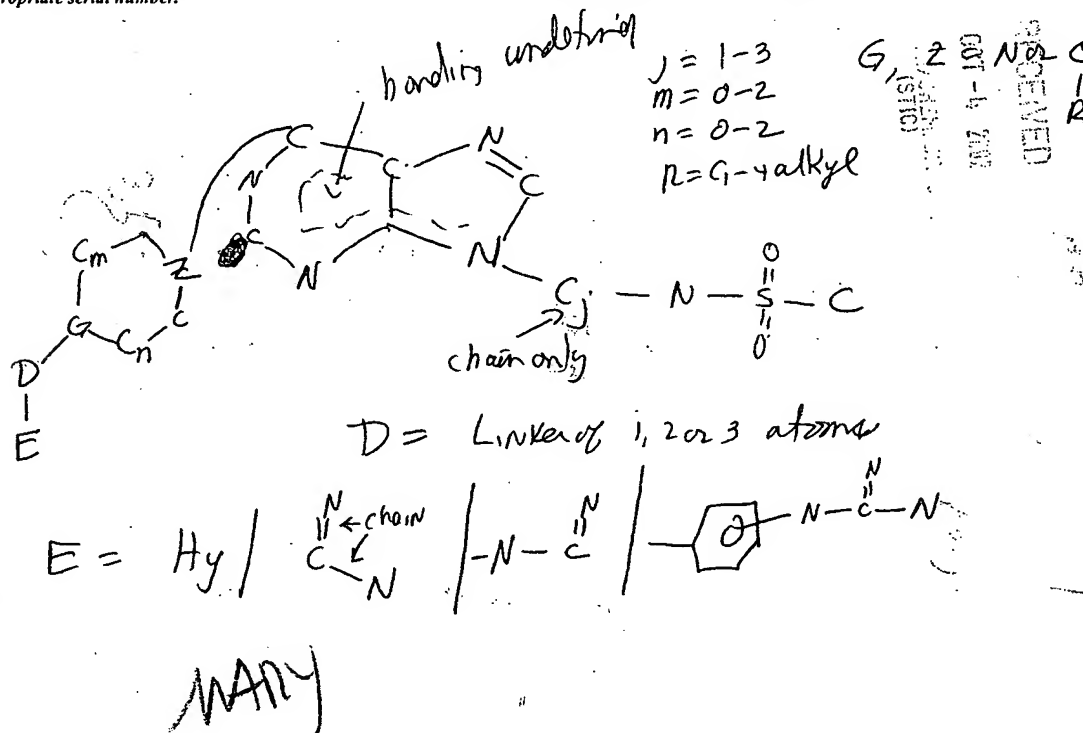 ropriate serial number.
bonding undefined
j = 1-3
m = 0-2
n = 0-2
R = C1-4 alkyl
G, Z N or C
R
RECEIVED
OCT -4
(STIC)
C
N
C
N
C
C
N
N
Cm
Z
G
Cn
C
D
E
Cj — N — S — C
O
O
chain only
D = Linker of 1, 2 or 3 atoms
E = Hy / N C N ← chain | -N-C N | N-C-N N
MARY